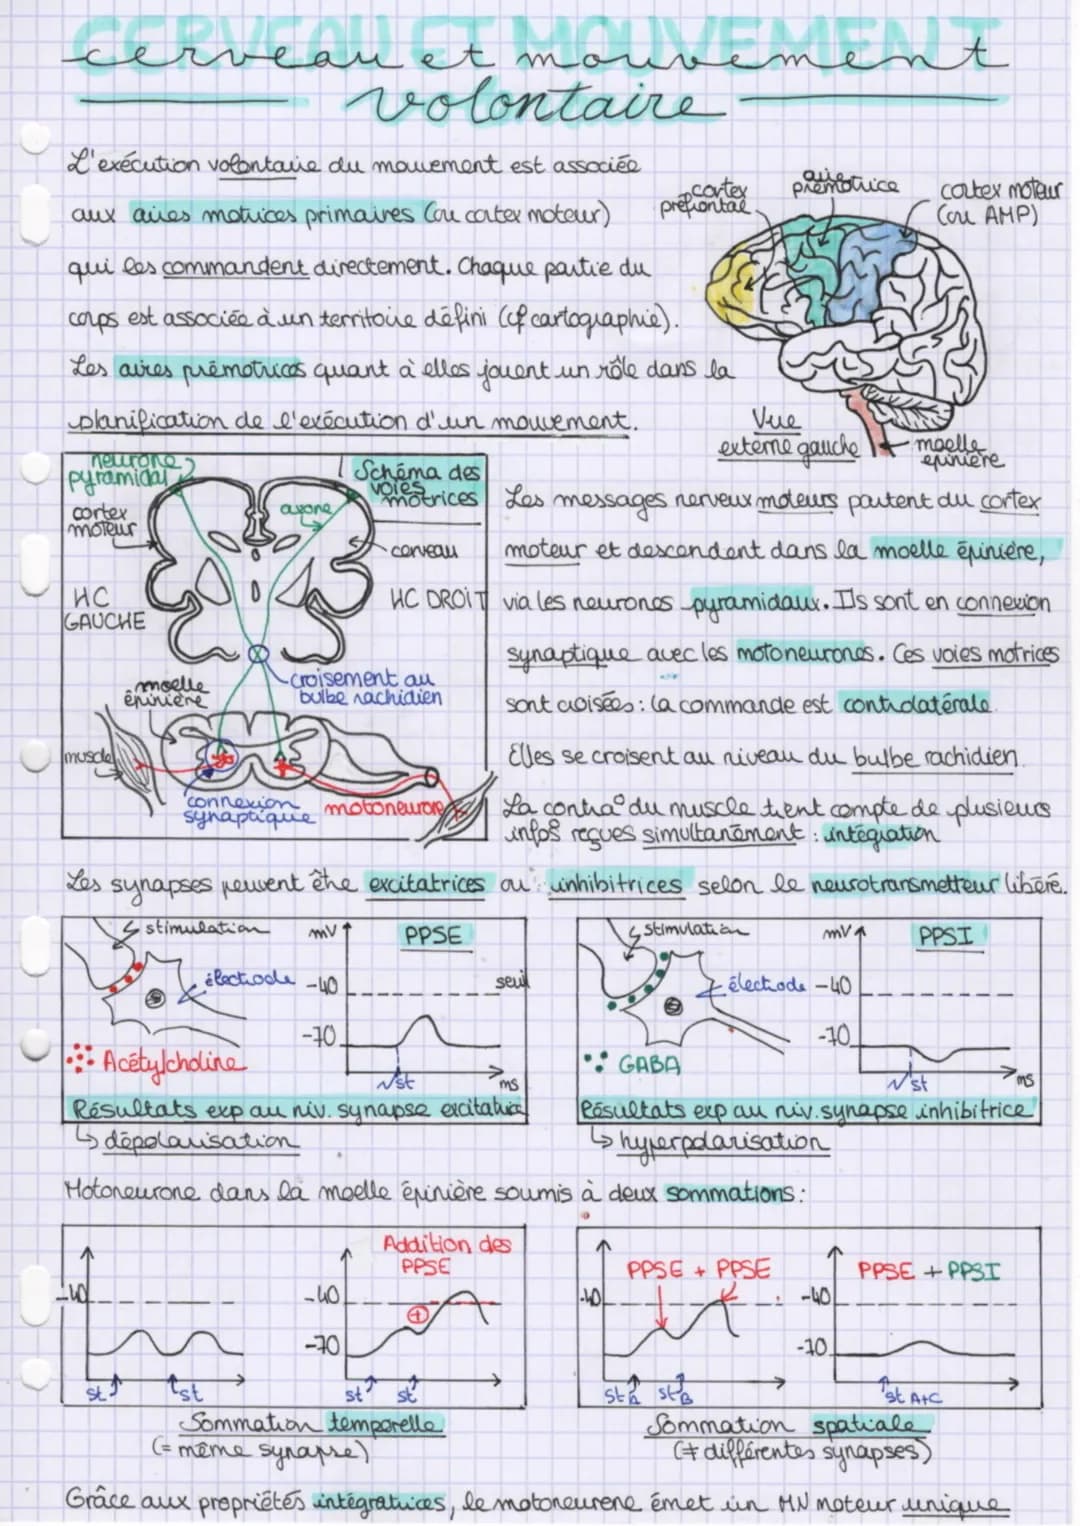 CERVEAU ET MOUVEMENT
cerveau et mouvement
volontaire
L'exécution volontaire du mouvement est associée
aux aires motrices primaires (ou cortex moteur)
qui les commandent directement. Chaque partie du
corps est associée à un territoire défini (cf cartographie).
Les aires prémotrices quant à elles jouent un rôle dans la
planification de l'exécution d'un mouvement.
cortex
préfrontal
aire
prémotrice
cortex moteur
(ou AMP)
Vue
externe gauche
moelle
épinière
neurone
pyramidal
Schéma des
voies
motrices
cortex
moteur
axone
cerveau
HC
GAUCHE
HC DROIT
croisement au
bulbe rachidien
moelle
épinière
muscle
connexion
synaptique
motoneurone
Les messages nerveux moteurs partent du cortex
moteur et descendent dans la moelle épinière,
via les neurones pyramidaux. Ils sont en connexion
synaptique avec les motoneurones. Ces voies motrices
sont croisées : la commande est controlatérale.
Elles se croisent au niveau du bulbe rachidien.
La contra° du muscle tient compte de plusieurs
info° reçues simultanément : intégration
Les synapses peuvent être excitatrices ou inhibitrices selon le neurotransmetteur libéré.
stimulation
mV
PPSE
électrode
-40
seuil
-70
Acétylcholine
st
ms
Résultats exp au niv. synapse excitatrice
↳ dépolarisation
stimulation
mV
PPSI
électrode
-40
-70
GABA
st
ms
Résultats exp au niv. synapse inhibitrice
↳ hyperpolarisation
Motoneurone dans la moelle épinière soumis à deux sommations :
-40
st
st
Addition des
PPSE
-40
+
-70
st
st
Sommation temporelle
(= même synapse)
PPSE + PPSE
-40
st A
st B
PPSE + PPSI
-40
-70
st A+C
Sommation spatiale
(≠ différentes synapses)
Grâce aux propriétés intégratrices, le motoneurone émet un MN moteur unique